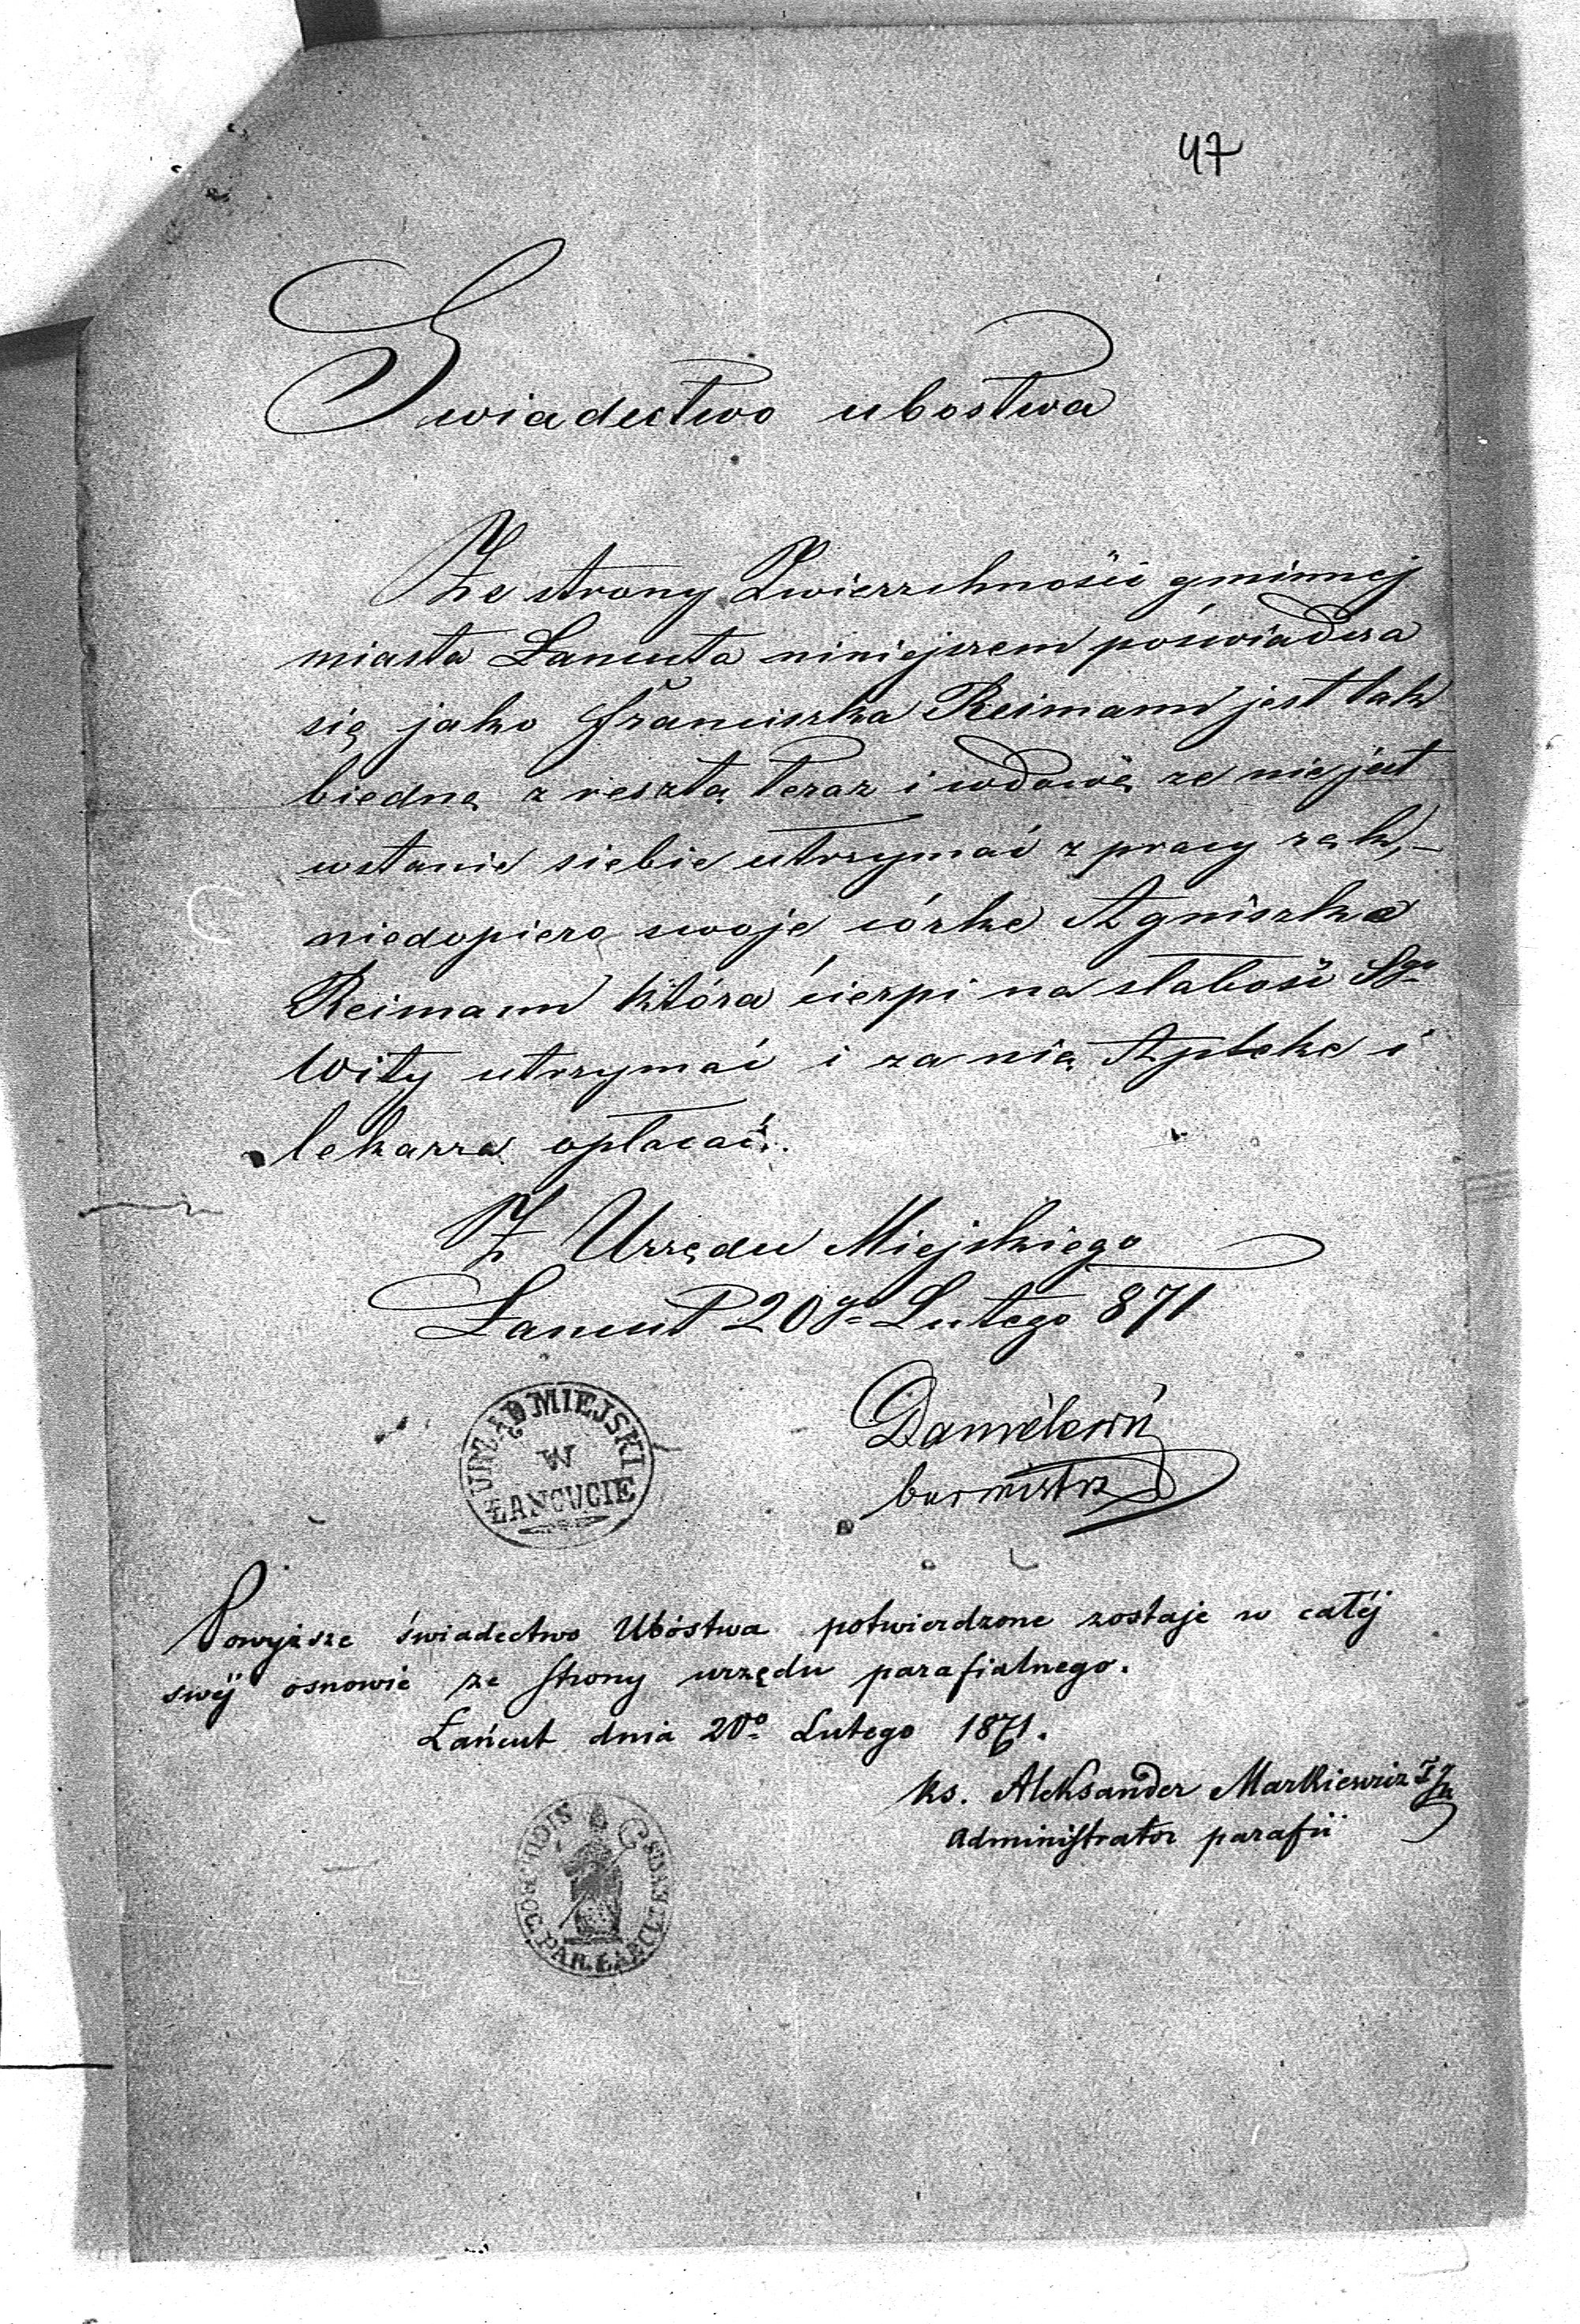 47
Swiadectwo ubostwa
Ze strony Zwierzchności gminnej
miasta Łancuta niniejszem poświadcza
się jako Franciszka Reimann jest tak
biedną z resztą teraz i wdową ze nie jest
wstanie siebie utrzymać z pracy rąk, –
niedopiero swoje córke Agniszke
Reimann która cierpi na słabość Sgo
Wity utrzymać i za nią Apteke i
lekarza opłacać.
Z Urzędu Miejskiego
Łancut 20go Lutego 871
URZĄD MIEJSKI
W
ŁANCUCIE
burmistrz
Powyższe świadectwo Ubóstwa potwierdzone zostaje w całéj
swéj osnowie ze strony urzędu parafialnego.
Łańcut dnia 20o Lutego 1871.
ks. Aleksander Markiewicz
Administrator parafii
PAR.